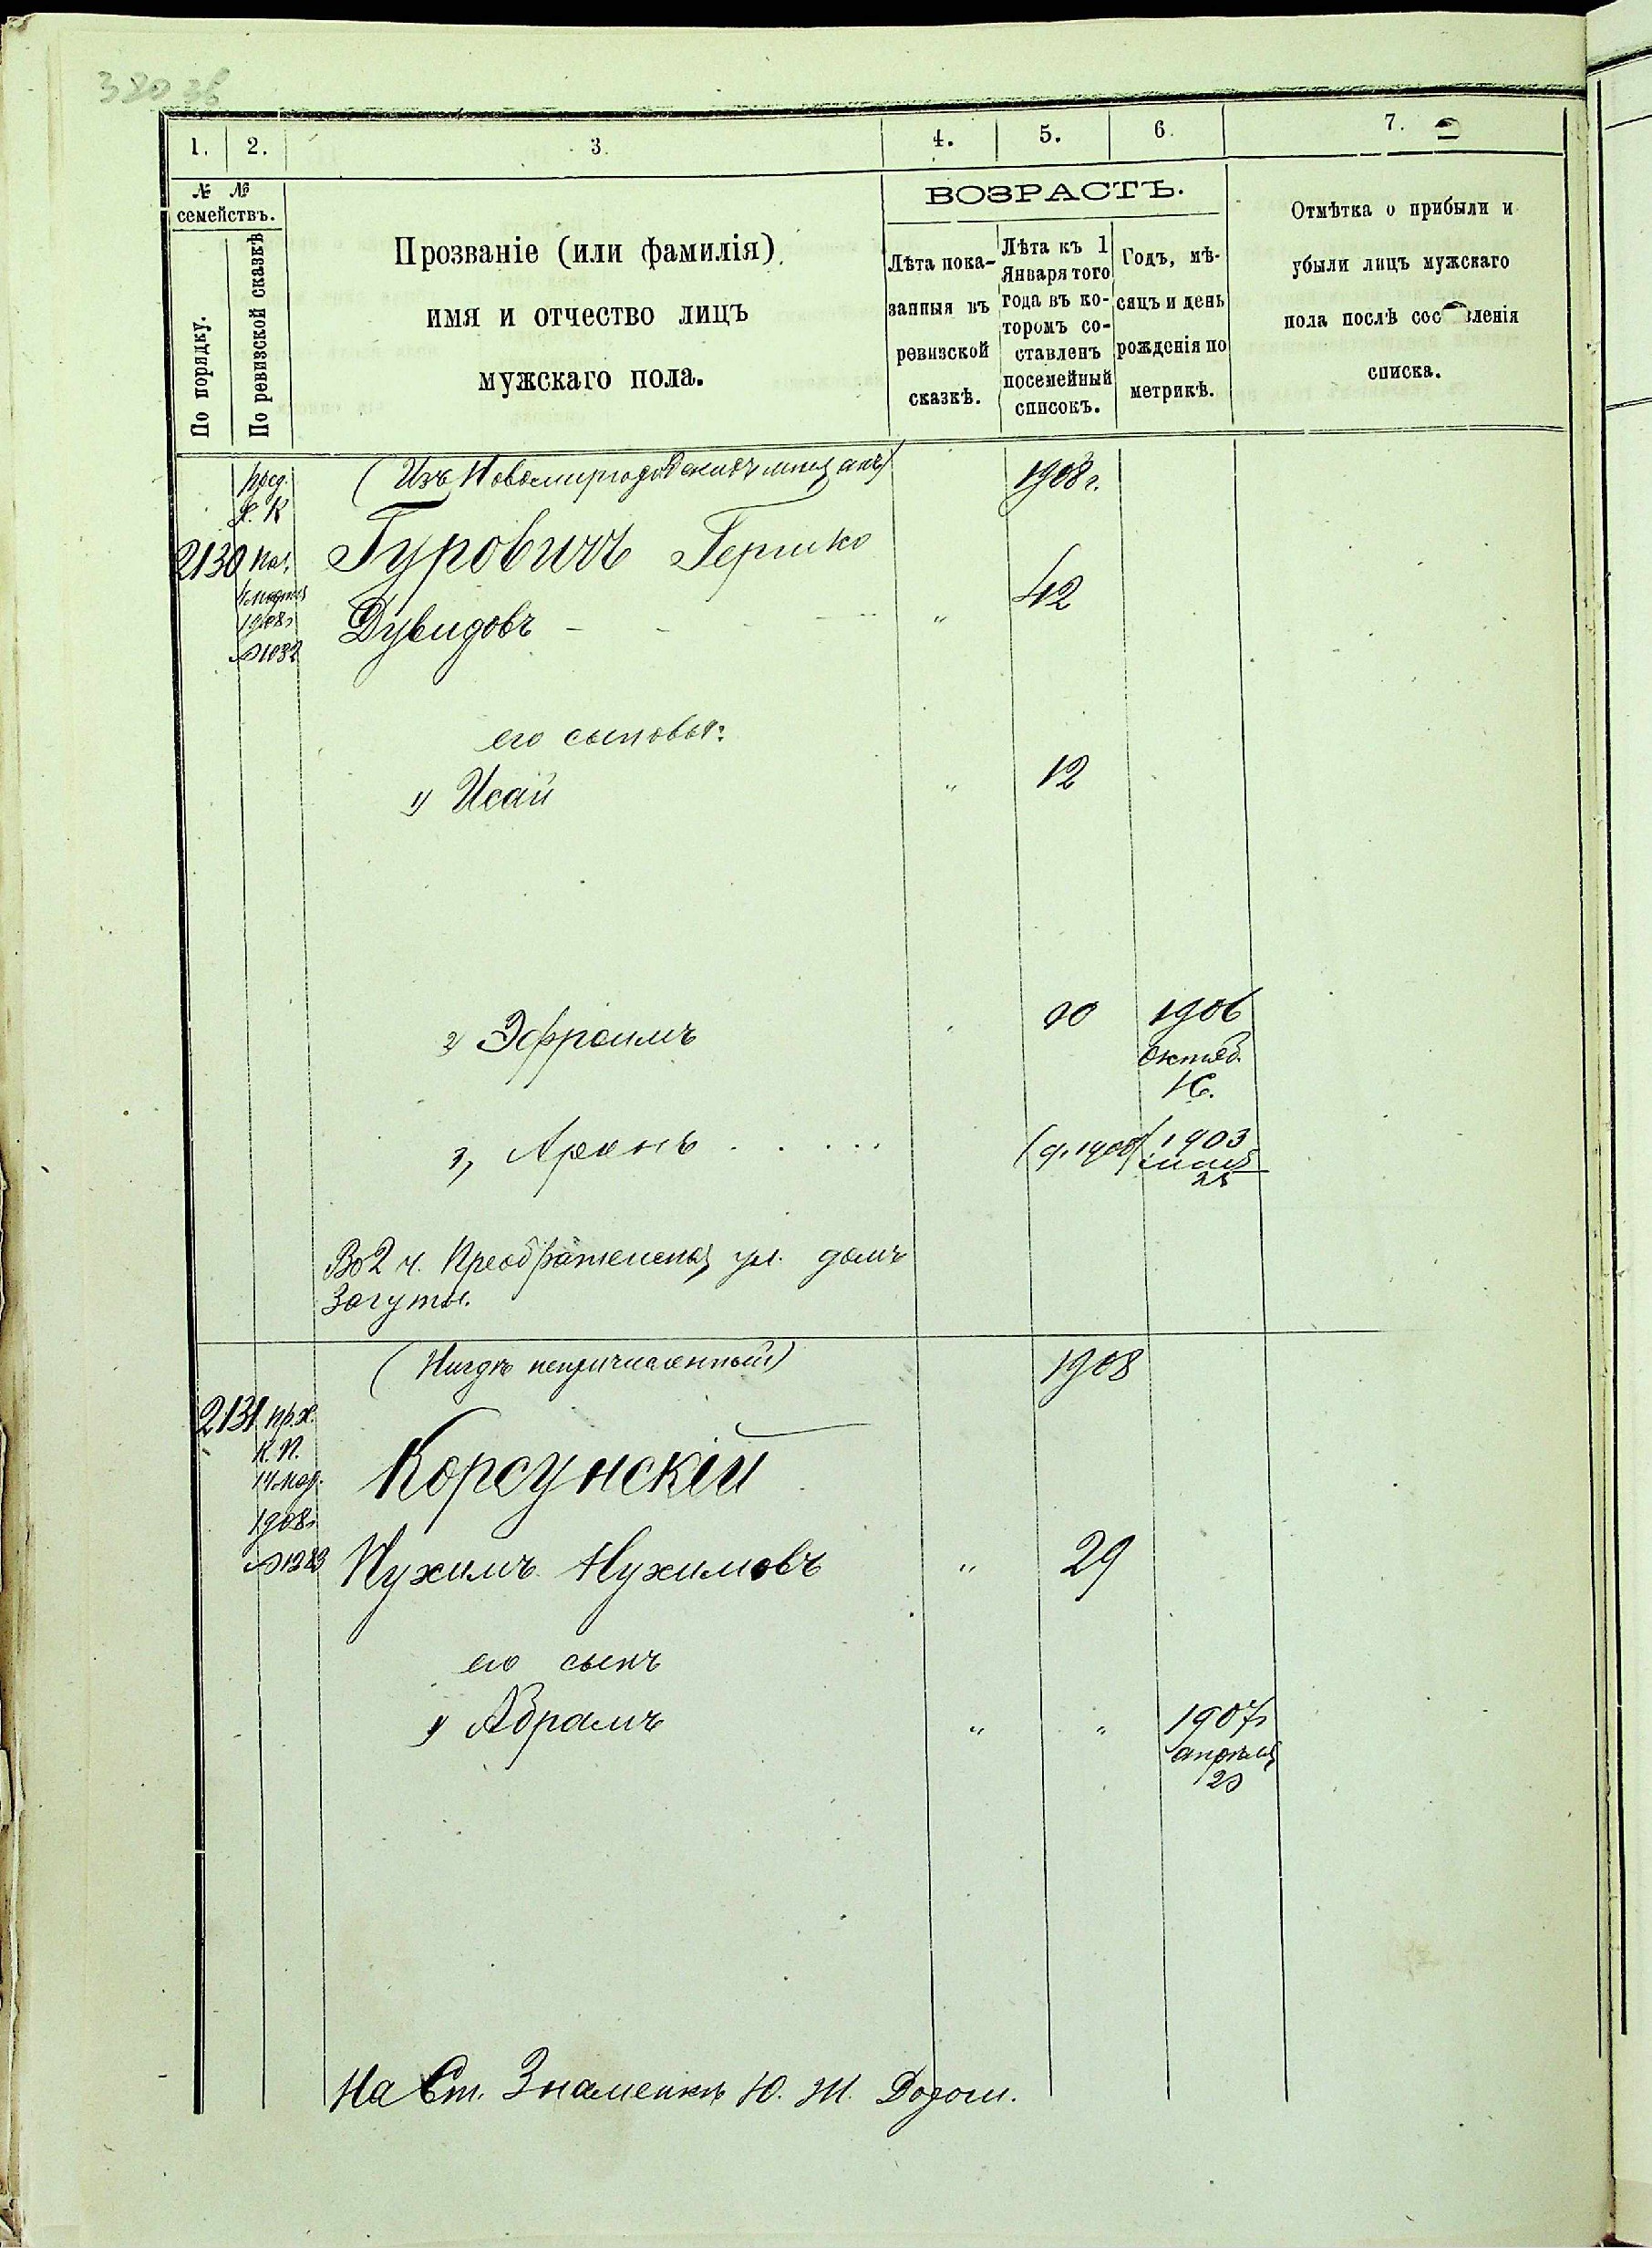 320 об
1. 2. 3. 4. 5. 6. 7.
№ №
семействъ.
По порядку.
По ревизской сказкѣ
Прозваніе (или фамилія)
имя и отчество лицъ
мужскаго пола.
ВОЗРАСТЪ.
Лѣта пока-
занныя въ
ревизской
сказкѣ.
Лѣта къ 1
Января того
года въ ко-
торомъ со-
ставленъ
посемейный
списокъ.
Годъ, мѣ-
сяцъ и день
рожденія по
метрикѣ.
Отмѣтка о прибыли и
убыли лицъ мужскаго
пола послѣ сос вленія
списка.
Пред. (Изъ Новомиргородскихъ мѣщанъ) 1908 г.
2130 Гуровичъ Гершко
1908 г Дувидовъ - - - - " 42
№1032
его сыновья:
1) Исай " 12
2) Эфроимъ 10 1906
Октяб.
16.
3) Аронъ . . . . . 1903
28
Во 2 ч. Преображенская ул. домъ
Загуты.
(Нигдѣ непричисленный) 1908
2131
К. П.
14 мар. Корсунскій
1908 г
№1283 Нухимъ Нухимовъ " 29
его сынъ
1) Абрамъ " " 1907 г
апрѣля
20
На Ст. Знаменкѣ Ю. Ж. Дороги.